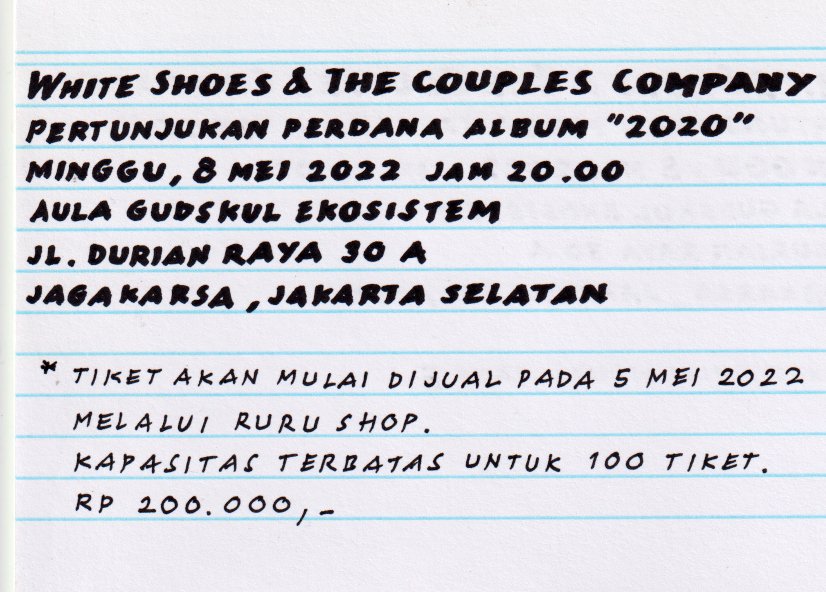 WHITE SHOES & THE COUPLES COMPANY
PERTUNJUKAN PERDANA ALBUM "2020"
MINGGU, 8 MEI 2022 JAM 20.00
AULA GUDSKUL EKOSISTEM
JL. DURIAN RAYA 30 A
JAGAKARSA, JAKARTA SELATAN
* TIKET AKAN MULAI DIJUAL PADA 5 MEI 2022
MELALUI RURU SHOP.
KAPASITAS TERBATAS UNTUK 100 TIKET.
RP 200.000,-